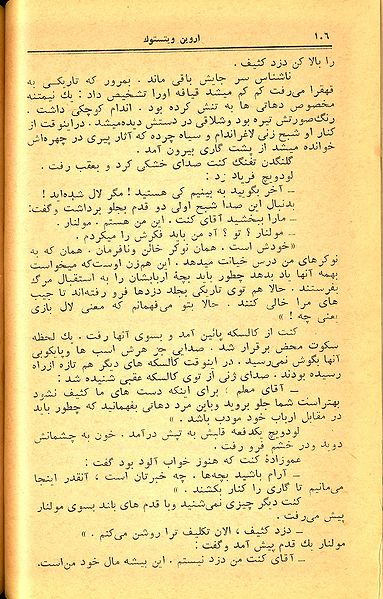 ۱۰۶
اروین ویتستوك
را بالا کن دزد کثیف .
ناشناس سر جایش باقی ماند . بمرور که تاریکی به
قهقرا میرفت کم کم میشد قیافه اورا تشخیص داد : یك نیمتنه
مخصوص دهاتی ها به تنش کرده بود . اندام کوچکی داشت .
رنگ صورتش تیره بود وشلاقی در دستش دیده میشد . دراینوقت از
کنار او شبح زنی لاغر اندام و سیاه چرده که آثار پیری در چهره‌اش
خوانده میشد از پشت گاری بیرون آمد .
گلنگدن تفنگ کنت صدای خشکی کرد و بعقب رفت .
لودویچ فریاد زد :
ـ آخر بگویید به بینیم کی هستید ! مگر لال شده‌اید !
بدنبال این صدا شبح اولی دو قدم بجلو برداشت وگفت:
ـ مارا ببخشید آقای کنت . این من هستم . مولنار .
ـ مولنار ؟ تو ؟ آه من باید فکرش را میکردم .
«خودش است . همان نوکر خائن ونافرمان . همان که به
نوکرهای من درس خیانت میدهد . این هم‌زن اوست‌که میخواست
بهمه آنها یاد بدهد چطور باید بچهٔ اربابشان را به استقبال مرگ
بفرستند . حالا هم توی تاریکی بجلد دزدها فرو رفته‌اند تا جیب
های مرا خالی کنند . حالا بتو میفهمانم که معنی لال بازی
یعنی چه ! »
کنت از کالسکه پائین آمد و بسوی آنها رفت . یك لحظه
سکوت محض برقرار شد . صدایی جز هرش اسب ها وپابکوبی
آنها بگوش نمی‌رسید . در اینوقت کالسکه های دیگر هم تازه ازراه
رسیده بودند . صدای زنی از توی کالسکه عقبی شنیده شد :
ـ آقای معلم . برای اینکه دست های ما کثیف نشود
بهتراست شما جلو بروید وباین مرد دهاتی بفهمانید که چطور باید
در مقابل ارباب خود مودب باشد . »
لودویچ یکدفعه قلبش به تپش درآمد . خون به چشمانش
دوید ودر خشم فرو رفت .
عموزادهٔ کنت که هنوز خواب آلود بود گفت :
ـ آرام باشید بچه‌ها . چه خبرتان است ، آنقدر اینجا
می‌مانیم تا گاری را کنار بکشند . »
کنت دیگر چیزی نمی‌شنید وبا قدم های بلند بسوی مولنار
پیش می‌رفت .
ـ دزد کثیف ، الان تکلیف ترا روشن می‌کنم . »
مولنار یك قدم پیش آمد وگفت :
ـ آقای کنت من دزد نیستم . این بیشه مال خود من‌است.